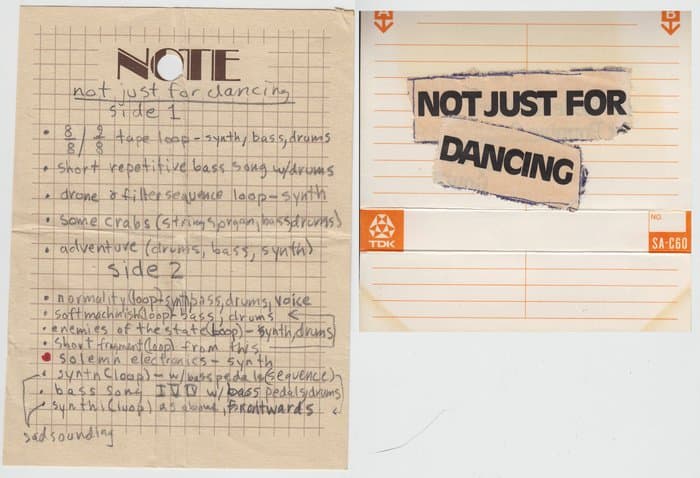 NOTE
not just for dancing
side 1
• 8/8 / 2/8 tape loop - synth, bass, drums
• short repetitive bass song w/drums
• drone & filter sequence loop - synth
• some crabs (strings, organ, bass, drums)
• adventure (drums, bass, synth)
side 2
• normality (loop) - synth, bass, drums, voice
• softmachinish (loop) - bass, drums
• enemies of the state (loop) - synth, drums
• short fragment (loop) from this
• solemn electronics - synth
• synth (loop) - w/ bass pedals (sequence)
• bass song I V IV w/ bass pedals, drums
• synth (loop) as above,
sadsounding
A
B
NOT JUST FOR
DANCING
TDK
NO.
SA-C60